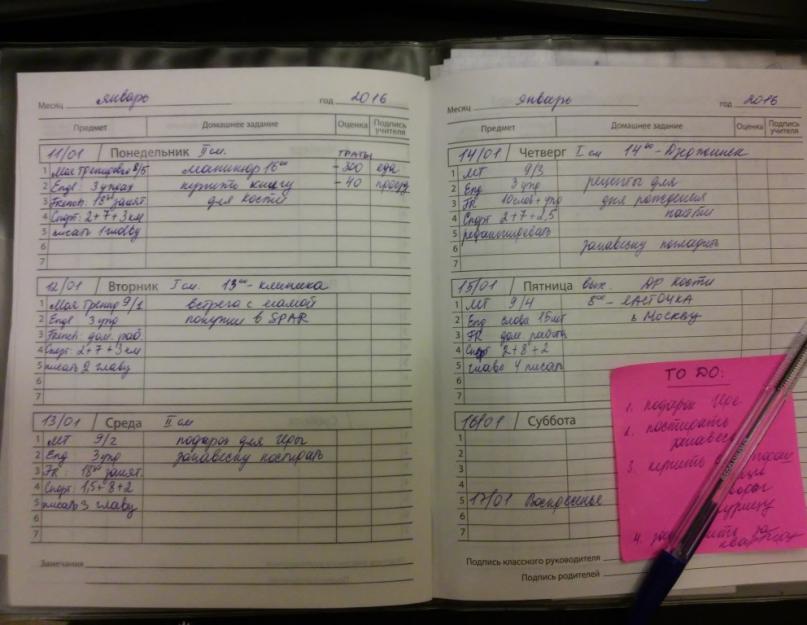 Месяц январь год 2016
Предмет Домашнее задание Оценка Подпись учителя
11/01 Понедельник II см. ТРАТЫ
1 Моя тренировка 8/5 маникюр 16⁰⁰ -300 еда
2 Engl: 3 упр купить книгу -40 проезд
3 French: 18⁰⁰ занят. для Кости
4 Спорт: 2+7+3 км
5 писать 1 главу
6
7
12/01 Вторник I см. 13⁰⁰ - клиника
1 Моя тренир 9/1 встреча с мамой
2 Engl 3 упр покупки в SPAR
3 French: дом. раб.
4 Спорт: 2+7+3 км
5 писать 2 главу
6
7
13/01 Среда II см
1 ЛЛТ 9/2 подарок для Иры
2 Eng 3 упр занавеску постирать
3 FR: 18⁰⁰ занят.
4 Спорт: 1,5+8+2
5 писать 3 главу
6
7
Замечания
Месяц январь год 2016
Предмет Домашнее задание Оценка Подпись учителя
14/01 Четверг I см 14⁰⁰ - Дзержинск
1 ЛЛТ 9/3
2 Eng 3 упр рецепты для
3 FR 10 слов + упр дня рождения
4 Спорт 2+7+2,5 найти
5 редактировать
6 занавеску погладить
7
15/01 Пятница вых. ДР Кости
1 ЛЛТ 9/4 - ЛАСТОЧКА
2 Eng слова 15 в Москву
3 FR дом. работа
4 Спорт 2+8+2
5 глава 4 писать
6
7
16/01 Суббота
1
2
3
4
5 17/01 Воскресенье
6
7
Подпись классного руководителя
Подпись родителей
TO DO:
1. подарок Ире
2. постирать
3. купить
4. за квартиру